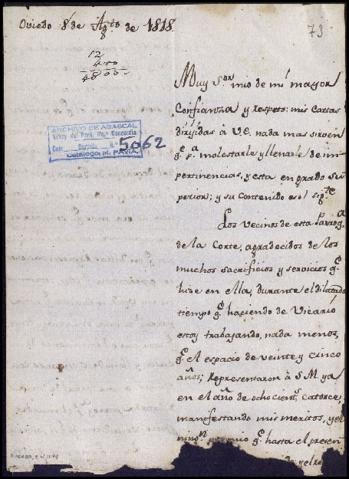 Oviedo 8 de Agto de 1818.
79
12
400
4800
ARCHIVO DE ABASCAL
5062
Muy Sor mio de mi mayor
Confianza y respeto: mis cartas
dirijidas á V.E. nada mas sirven
qe pa molestarle y llenarle de im-
pertinencias, y esta en grado su-
perior; y su contenido es el sigte
Los vecinos de esta Parroqa
de la Corte, agradecidos de los
muchos sacrificios y servicios qe
hize en ella, durante el dilatado
tiempo qe haciendo de Vicario
estoy trabajando, nada menos,
qe el espacio de veinte y cinco
años; Representaron á S.M. ya
en el año de ochocient. catorce,
manifestando mis meritos, y el
ningn premio qe hasta el presen